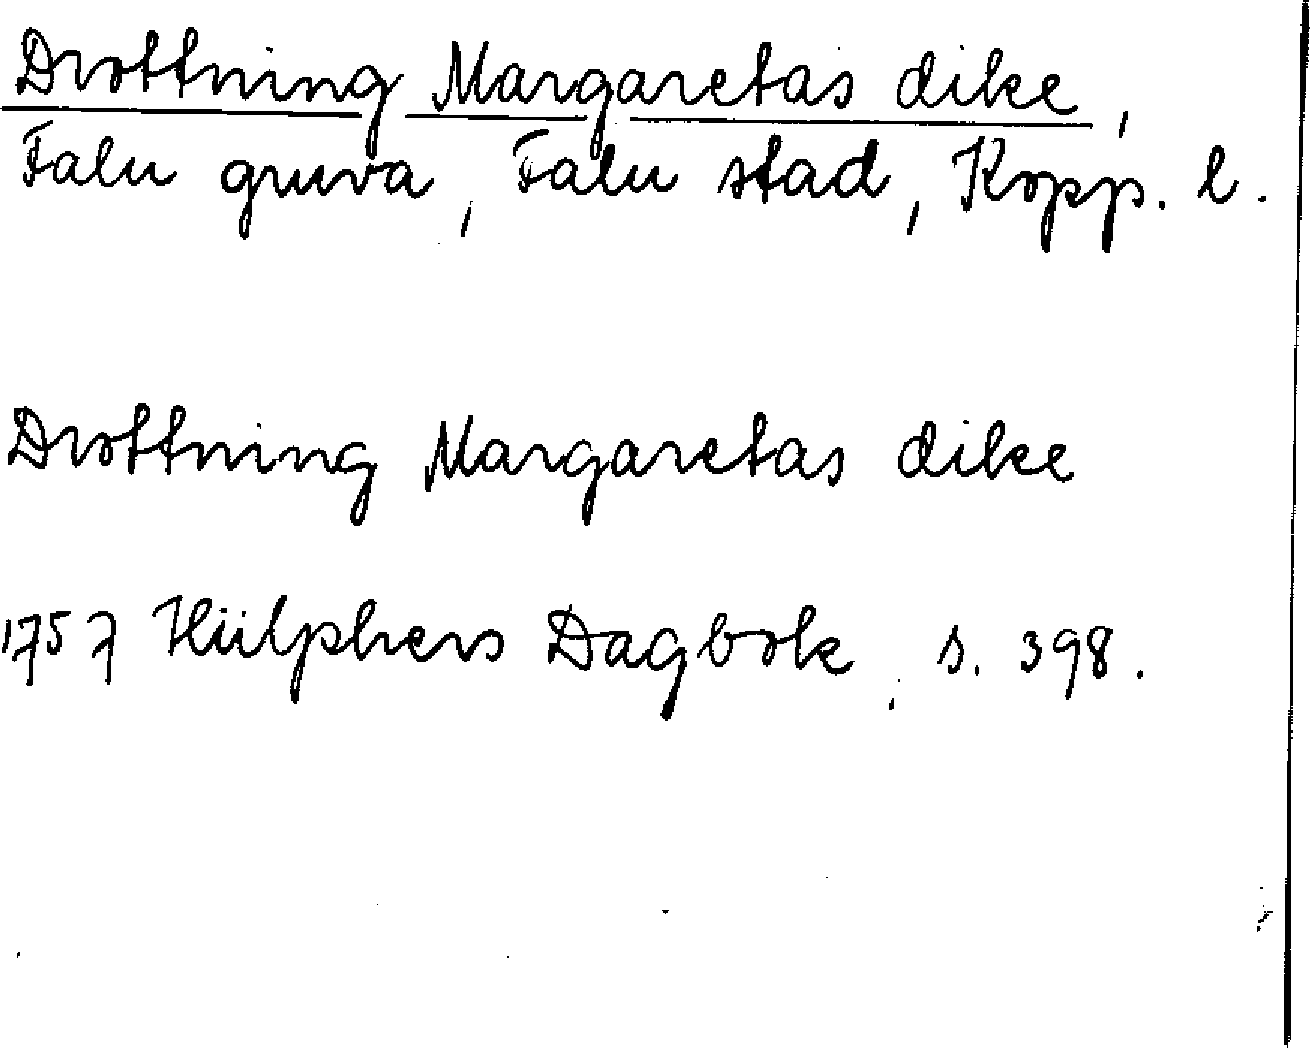 Drottning Margaretas dike,
Falu gruva, Falu stad, Kopp. l.
Drottning Margaretas dike
1757 Hülphers Dagbok, s. 398.